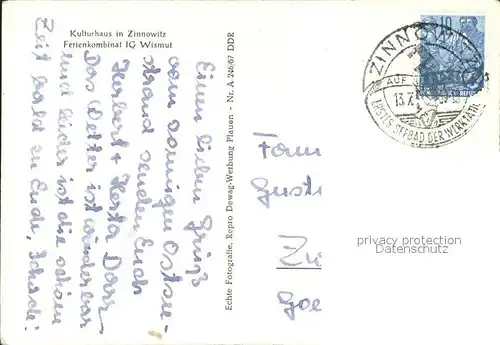 Kulturhaus in Zinnowitz
Ferienkombinat IG Wismut
Einen lieben Gruß
vom sonnigen Ostsee-
strand senden Euch
Herbert + Herta
Das Wetter ist wunderbar
und leider ist die schöne
Zeit bald zu Ende, Schade!
Echte Fotografie, Repro Dewag-Werbung Plauen - Nr. A 246/67 DDR
ZINNOWITZ
AUF
13.7.
ERSTES SEEBAD DER WERKTÄTIGEN
10
Fam
Gust
privacy protection
Datenschutz
Zi
Goe